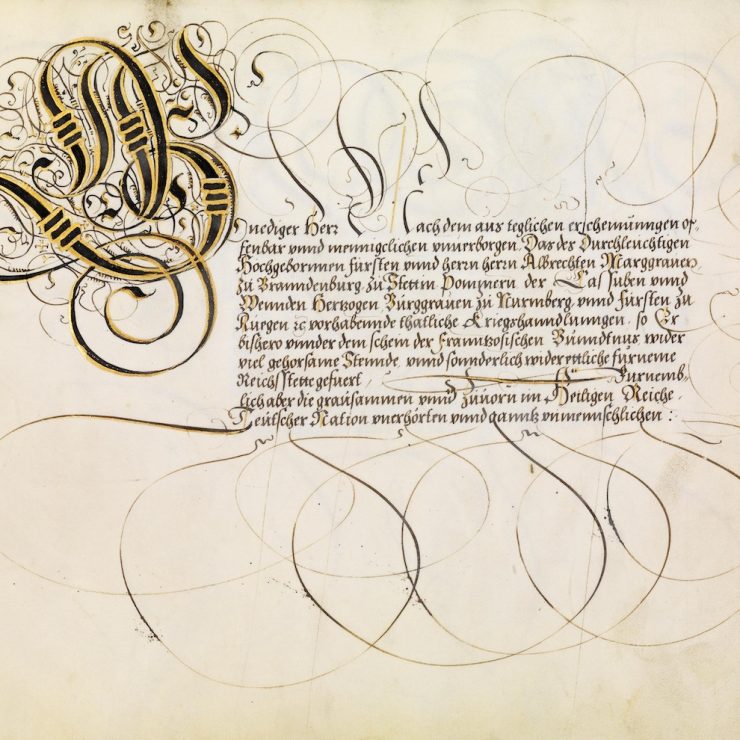 Gnediger Herr Nach dem aus teglichen erscheinunngen of-
fenbar vnnd mennigclichen vnuerborgen. Das des Durchleuchtigen
Hochgebornnen fürsten vnnd herrn herrn Albrechten Marggrauen
zu Branndenburg, zu Stettin Pommern der Cassuben vnnd
Wennden Hertzogen Burggrauen zu Nurmberg, vnnd fürsten zu
Ruegen ꝛc vorhabennde thatliche Kriegshanndlunngen, so Er
bishero vnnder dem schein der Franntzosischen Bünndtnus wider
viel gehorsame Stennde, vnnd sonnderlich wider ettliche furneme
Reichsstette gefuert, Furnemb-
lich aber die grausammen vnnd zuuorn im Heiligen Reiche
Teutscher Nation vnerhörten vnnd ganntz vnmennschlichen :